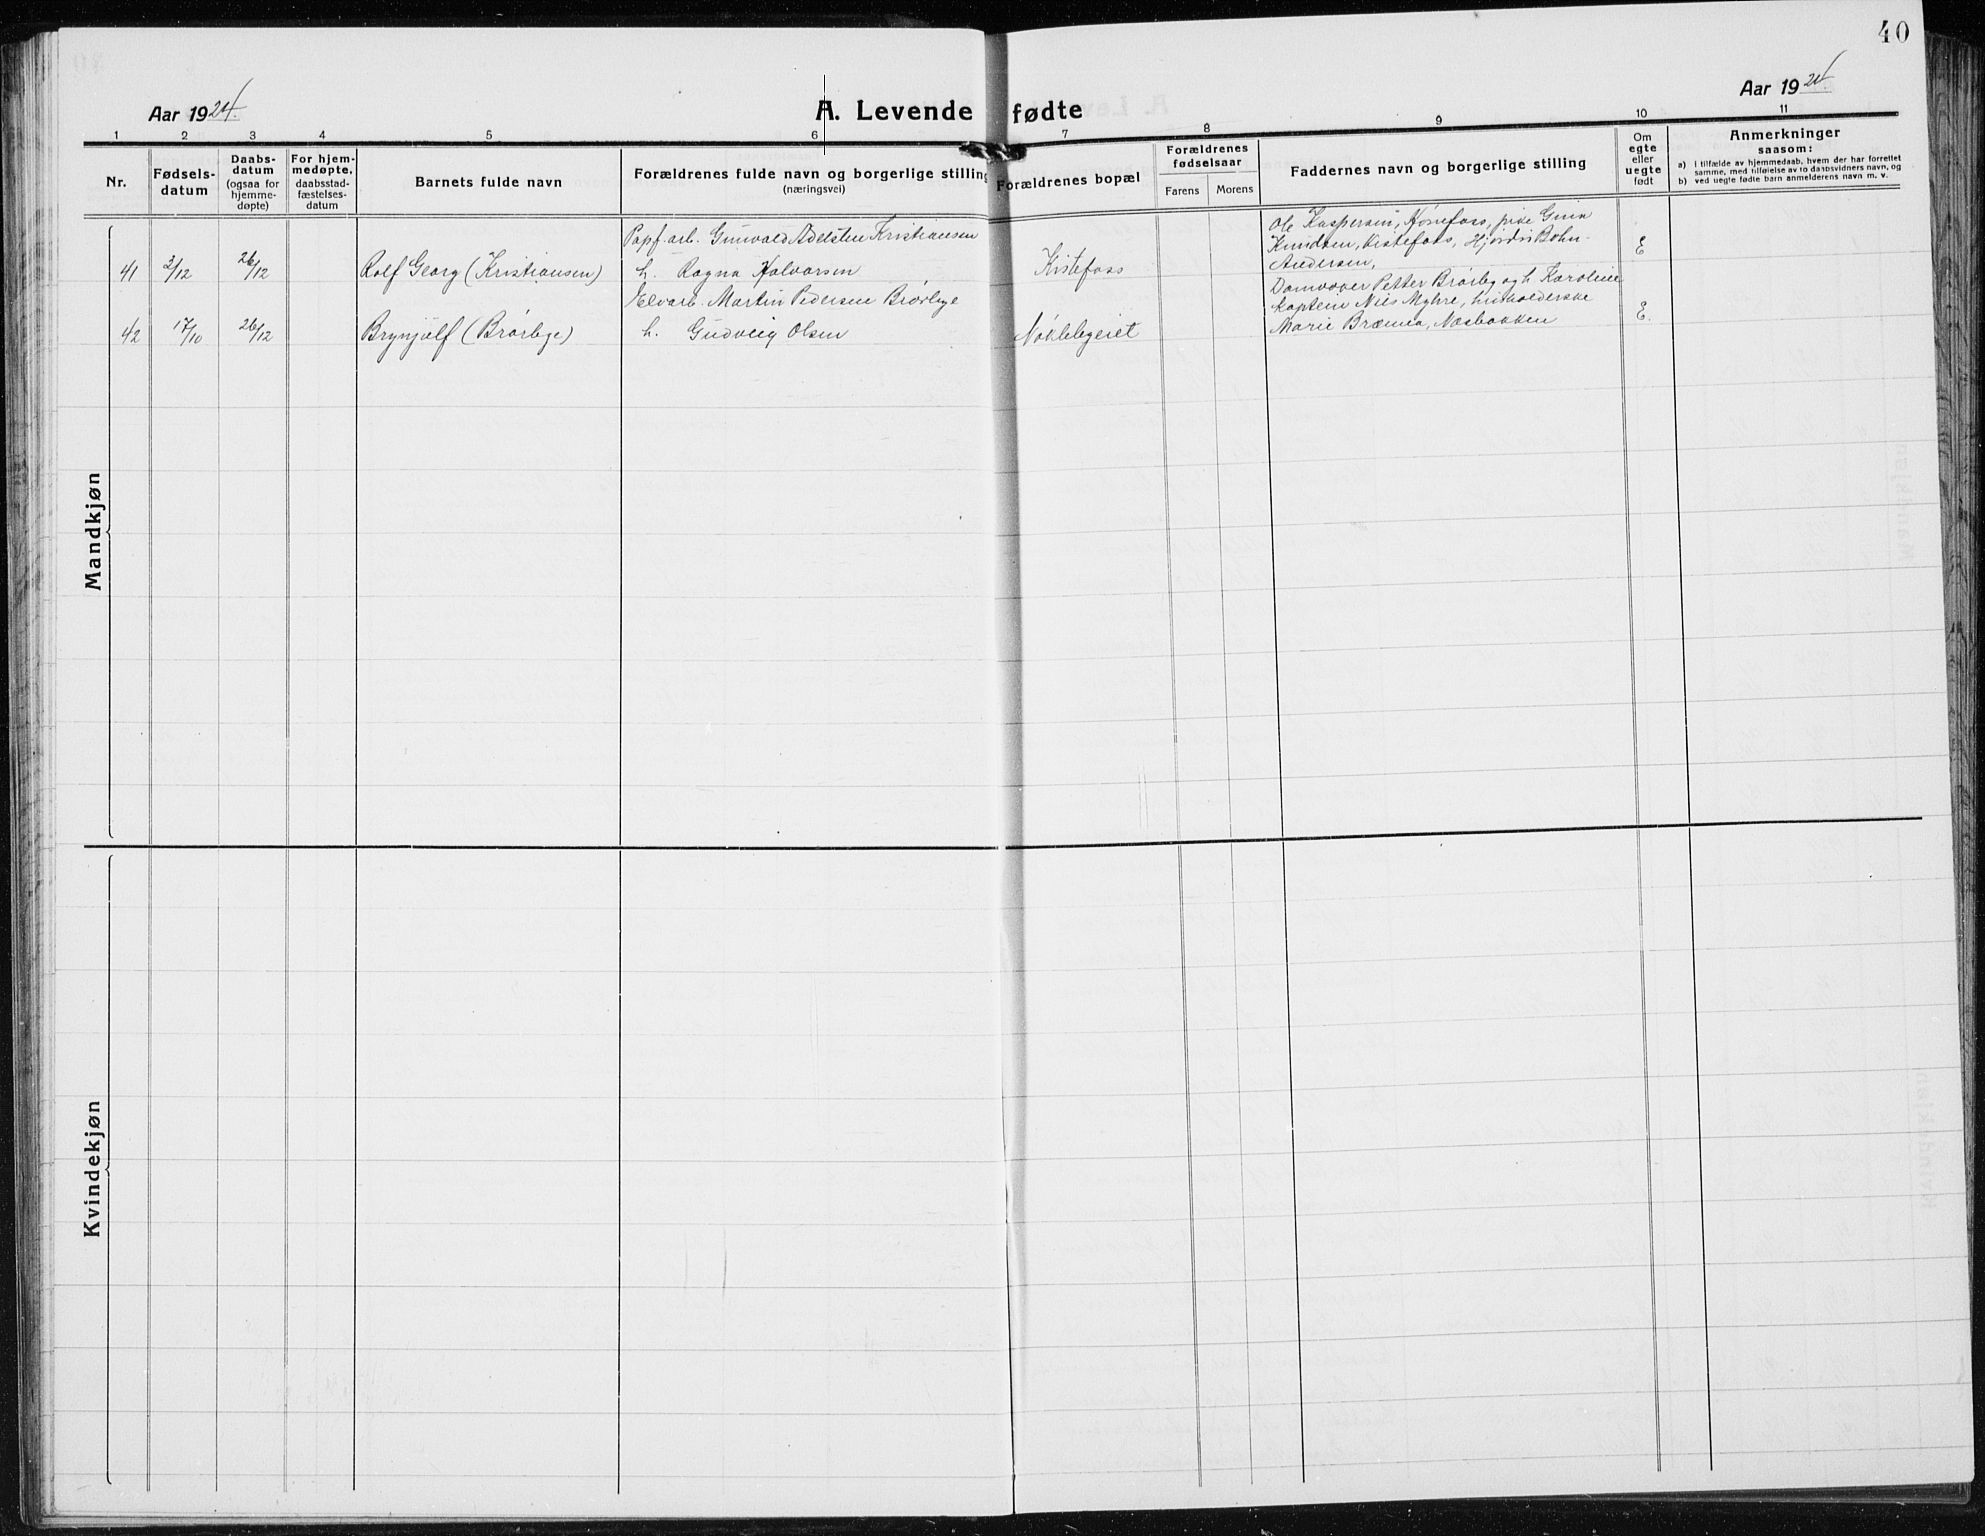 40
Aar 1924.
A. Levende fødte
Aar 1924.
1 2 3 4 5 6 7 8 9 10 11
Nr.
Fødsels-
datum
Daabs-
datum
(ogsaa for
hjemme-
døpte)
For hjem-
medøpte,
daabsstad-
fæstelses-
datum
Barnets fulde navn
Forældrenes fulde navn og borgerlige stilling
(næringsvei)
Forældrenes bopæl
Forældrenes
fødselsaar
Farens
Morens
Faddernes navn og borgerlige stilling
Om
egte
eller
uegte
født
Anmerkninger
saasom:
a) I tilfælde av hjemmedaab, hvem der har forrettet
samme, med tilføielse av to daabsvidners navn, og
b) ved uegte fødte barn anmelderens navn m. v.
Mandkjøn
Papf. arb. Gunvald Adelsten Kristiansen
41 3/12 26/12 Rolf Georg (Kristiansen) h. Ragna Halvorsen Kistefoss
Ole Kaspersen, Hønefoss, pike
Knudsen, Kistefoss, Hjørdis Bohn-
Andersen, E
Elvarb. Martin Pedersen Brørbye
42 17/10 26/12 Brynjulf (Brørbye) h. Gudveig Olsen Nøklebyeiet
Damvover Petter Brørby og h. Karoline
Kaptein Nils Myhre,
Marie Bræmna, Næsbakken E.
Kvindekjøn